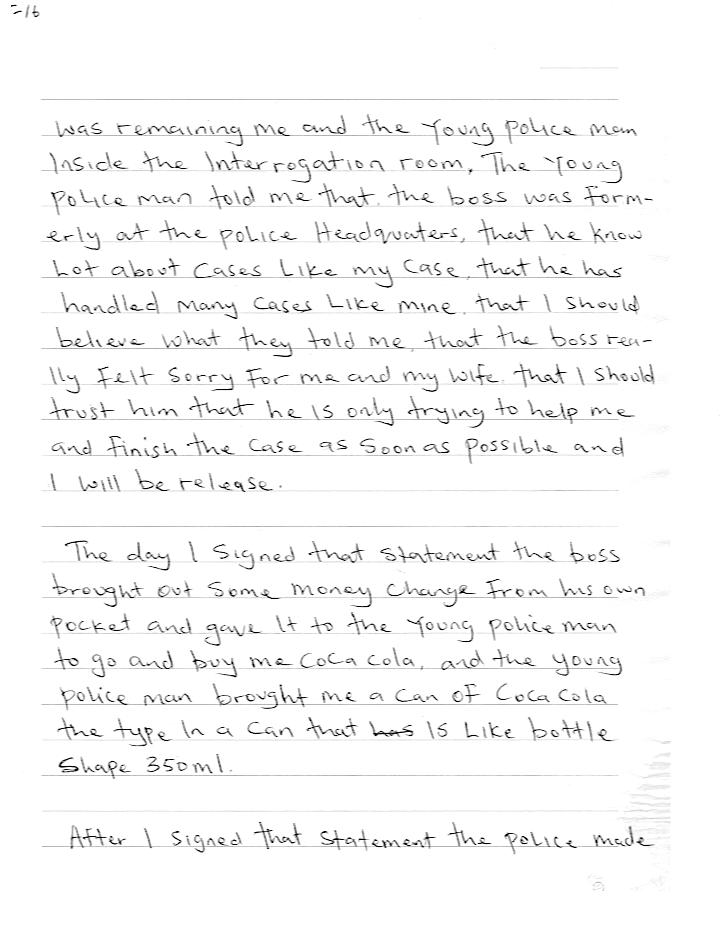 =16
was remaining me and the Young police man
Inside the Interrogation room, The Young
Police man told me that. the boss was Form-
erly at the police Headquaters, that he know
Lot about Cases Like my Case, that he has
handled Many Cases Like mine. that I Should
believe what they told me, that the boss rea-
lly Felt Sorry For me and my wife. that I Should
trust him that he is only trying to help me
and finish the Case as Soon as possible and
I will be release.
The day I Signed that Statement the boss
brought out Some money Change From his own
Pocket and gave It to the Young police man
to go and buy me Coca cola, and the young
police man brought me a Can OF Coca Cola
the type In a Can that has Is Like bottle
Shape 350ml.
After I Signed that Statement the police made